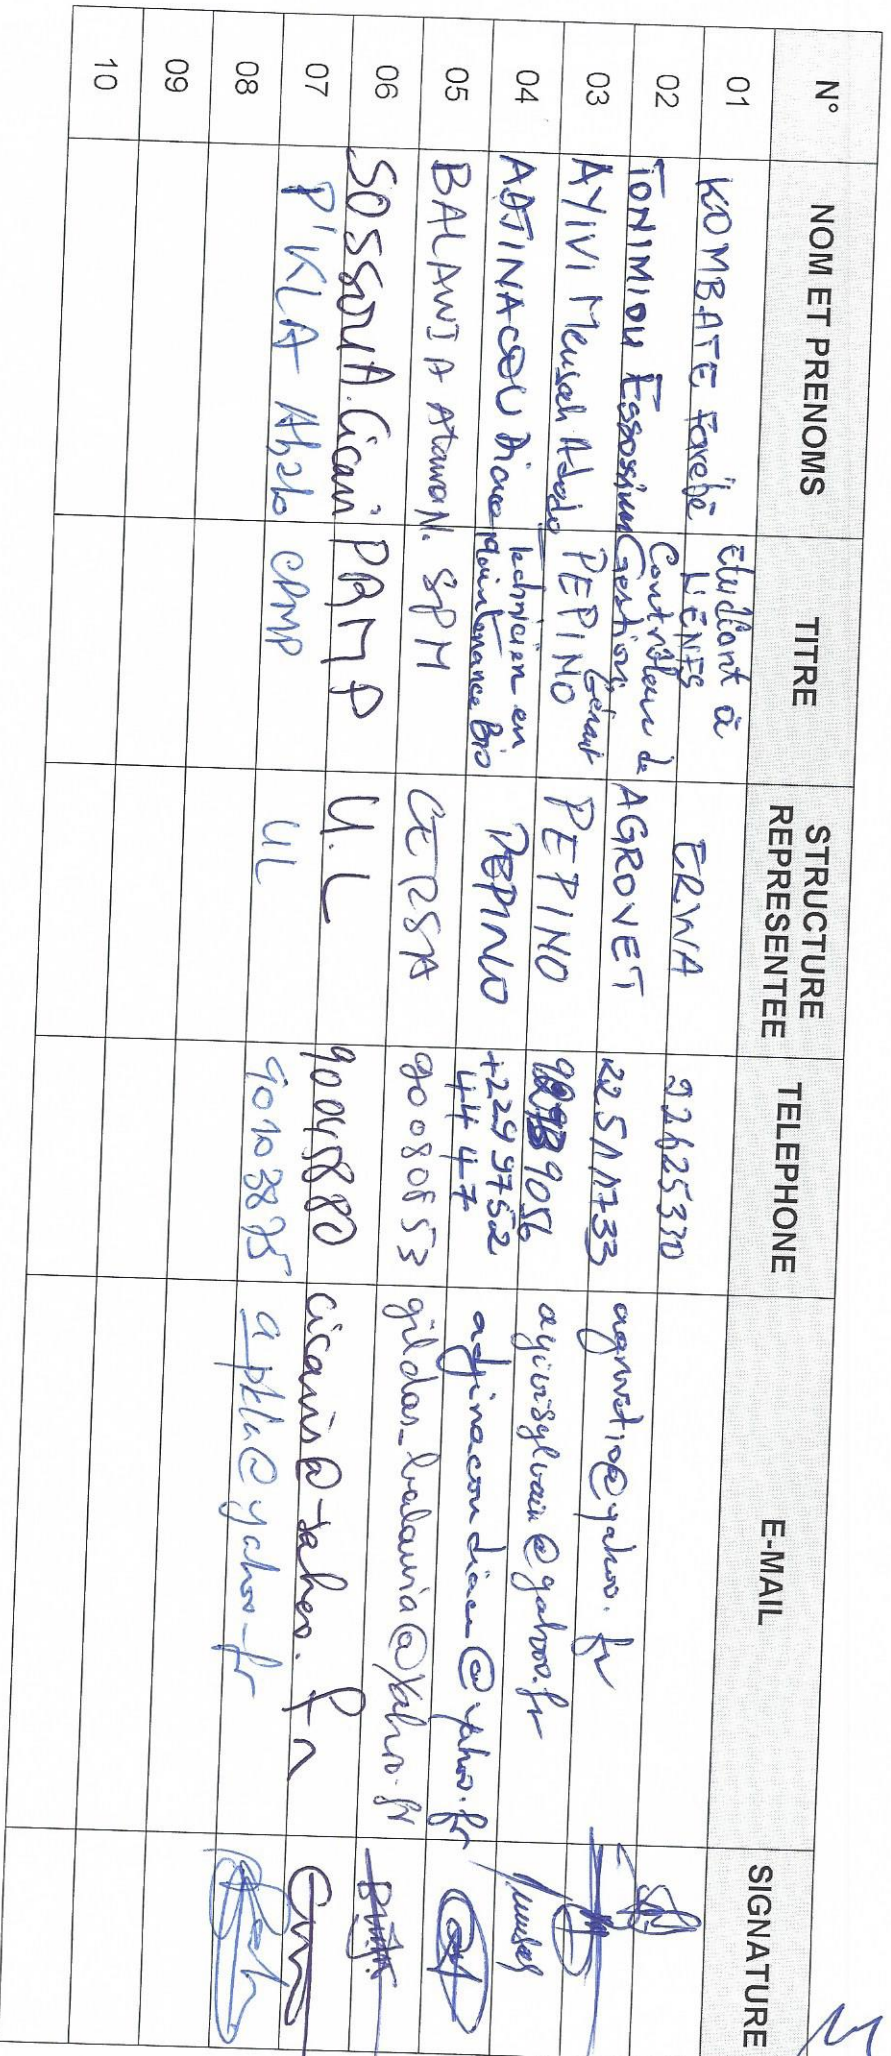 N° NOM ET PRENOMS TITRE STRUCTURE REPRESENTEE TELEPHONE E-MAIL SIGNATURE
01 KOMBATE Etudiant à L'ENFS ERWA 92625370
02 TONIMIOU Essossinam Contrôleur de Gestion AGROVET 22511733 @yahoo.fr
03 AYIVI Mensah Gérant PEPINO PEPINO 9056 ayivisylvain@yahoo.fr
04 ADJINACOU technicien en Maintenance Bio PEPINO +229 9752 44 47 @yahoo.fr
05 BALAWIA N. SPM CERSA gildas_balawia@yahoo.fr
06 SOSSOU A. Cicain PRMP U.L 90045880
07 P'KLA Abalo CPMP UL 90103875 apkla@yahoo.fr
08
09
10